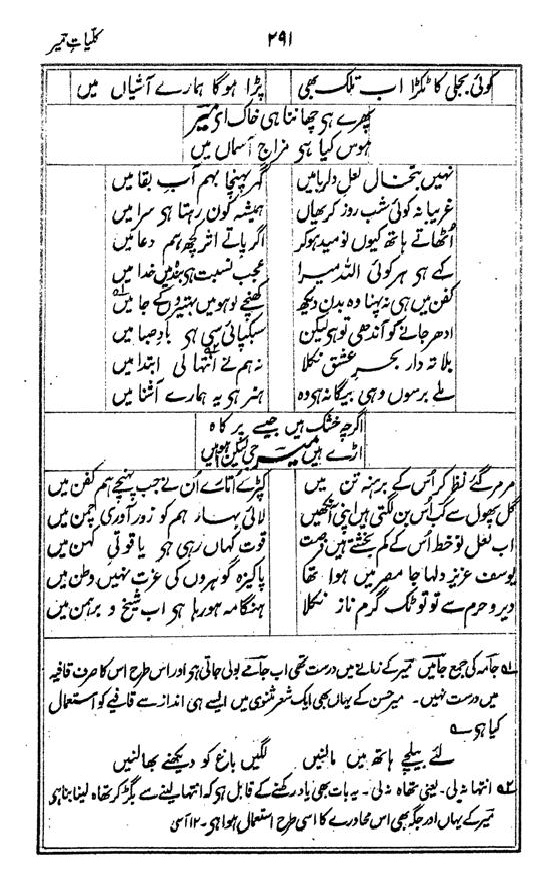 کلیاتِ میر
۲۹۱
کوئی بجلی کا ٹکڑا اب تلک بھی پڑا ہوگا ہمارے آشیاں میں
پھرے ہی چھانتا ہی خاک ای میرؔ
ہوس کیا ہی مزاج آسماں میں
نہیں بتخال لعلِ دلربا میں گہر پہنچا بہم آبِ بقا میں
غریبانہ کوئی شب روز کریھاں ہمیشہ کون رہتا ہو سرا میں
اُٹھاتے ہاتھ کیوں نومید ہوکر اگر پاتے اثر کچھ ہم دعا میں
کہے ہی ہر کوئی اللہ میرا عجب نسبت ہی بندہ میں خدا میں
کفن میں ہی نہ پہنا وہ بدن دیکھ کھنچے لوہو میں بہتیروں کے جامیں ؎۱
ادھر جانے کو آندھی تو ہی لیکن سبکپائی سی ہی بادِ صبا میں
بلا تہ دار بحرِ عشق نکلا نہ ہم نے انتہا لی ؎۲ ابتدا میں
ملے برسوں وہی بیگانہ ہی وہ ہنر ہی یہ ہمارے آشنا میں
اگرچہ خشک ہیں جیسے پر کاہ
اڑے ہیں میرؔ جی لیکن ہوا میں
مرمر گئے نظر کر اُس کے برہنہ تن میں کپڑے اُتارے اُن نے جب پہنچے ہم کفن میں
گل پھول سے کب اُس بن لگتی ہیں اپنی آنکھیں لائی بہار ہم کو زور آوری چمن میں
اب لعلِ نوخط اُس کے کم بخشتے ہیں فرحت قوت کہاں رہی ہو یاقوتیِ کہن میں
یوسف عزیز دلہا جا مصر میں ہوا تھا پاکیزہ گوہروں کی عزت نہیں وطن میں
دیر و حرم سے تو تو ٹک گرم ناز نکلا ہنگامہ ہورہا ہو اب شیخ و برہمن میں
؎۱ جامہ کی جمع جامیں میرؔ کے زمانے میں درست تھی اب جامے بولی جاتی ہو اور اس طرح اس کا صرف قافیہ
میں درست نہیں۔ میر حسن کے یہاں بھی ایک شعر مثنوی میں ایسے ہی انداز سے قافیے کو استعمال
کیا ہو ؎
لئے بیلچے ہاتھ میں مالنیں لگیں باغ کو دیکھنے بھالنیں
؎۲ انتہا نہ لی۔ یعنی تھاہ نہ لی۔ یہ بات بھی یاد رکھنے کے قابل ہو کہ انتہا لینے سے بگڑ کر تھاہ لینا بنا ہو
میرؔ کے یہاں اور جگہ بھی اس محاورے کا اسی طرح استعمال ہوا ہو۔ ۱۲ آسی